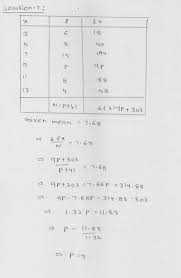 Question-7:
x f fx
3 6 18
5 8 40
7 15 105
9 P 9P
11 8 88
13 4 52
N=P+41 Σfx=9P+303
Given mean = 7.68
⇒ Σfx/N = 7.68
⇒ 9P+303/P+41 = 7.68
⇒ 9P+303=7.68P+314.88
⇒ 9P-7.68P=314.88-303
⇒ 1.32P=11.88
⇒ P=11.88/1.32
⇒ P=9